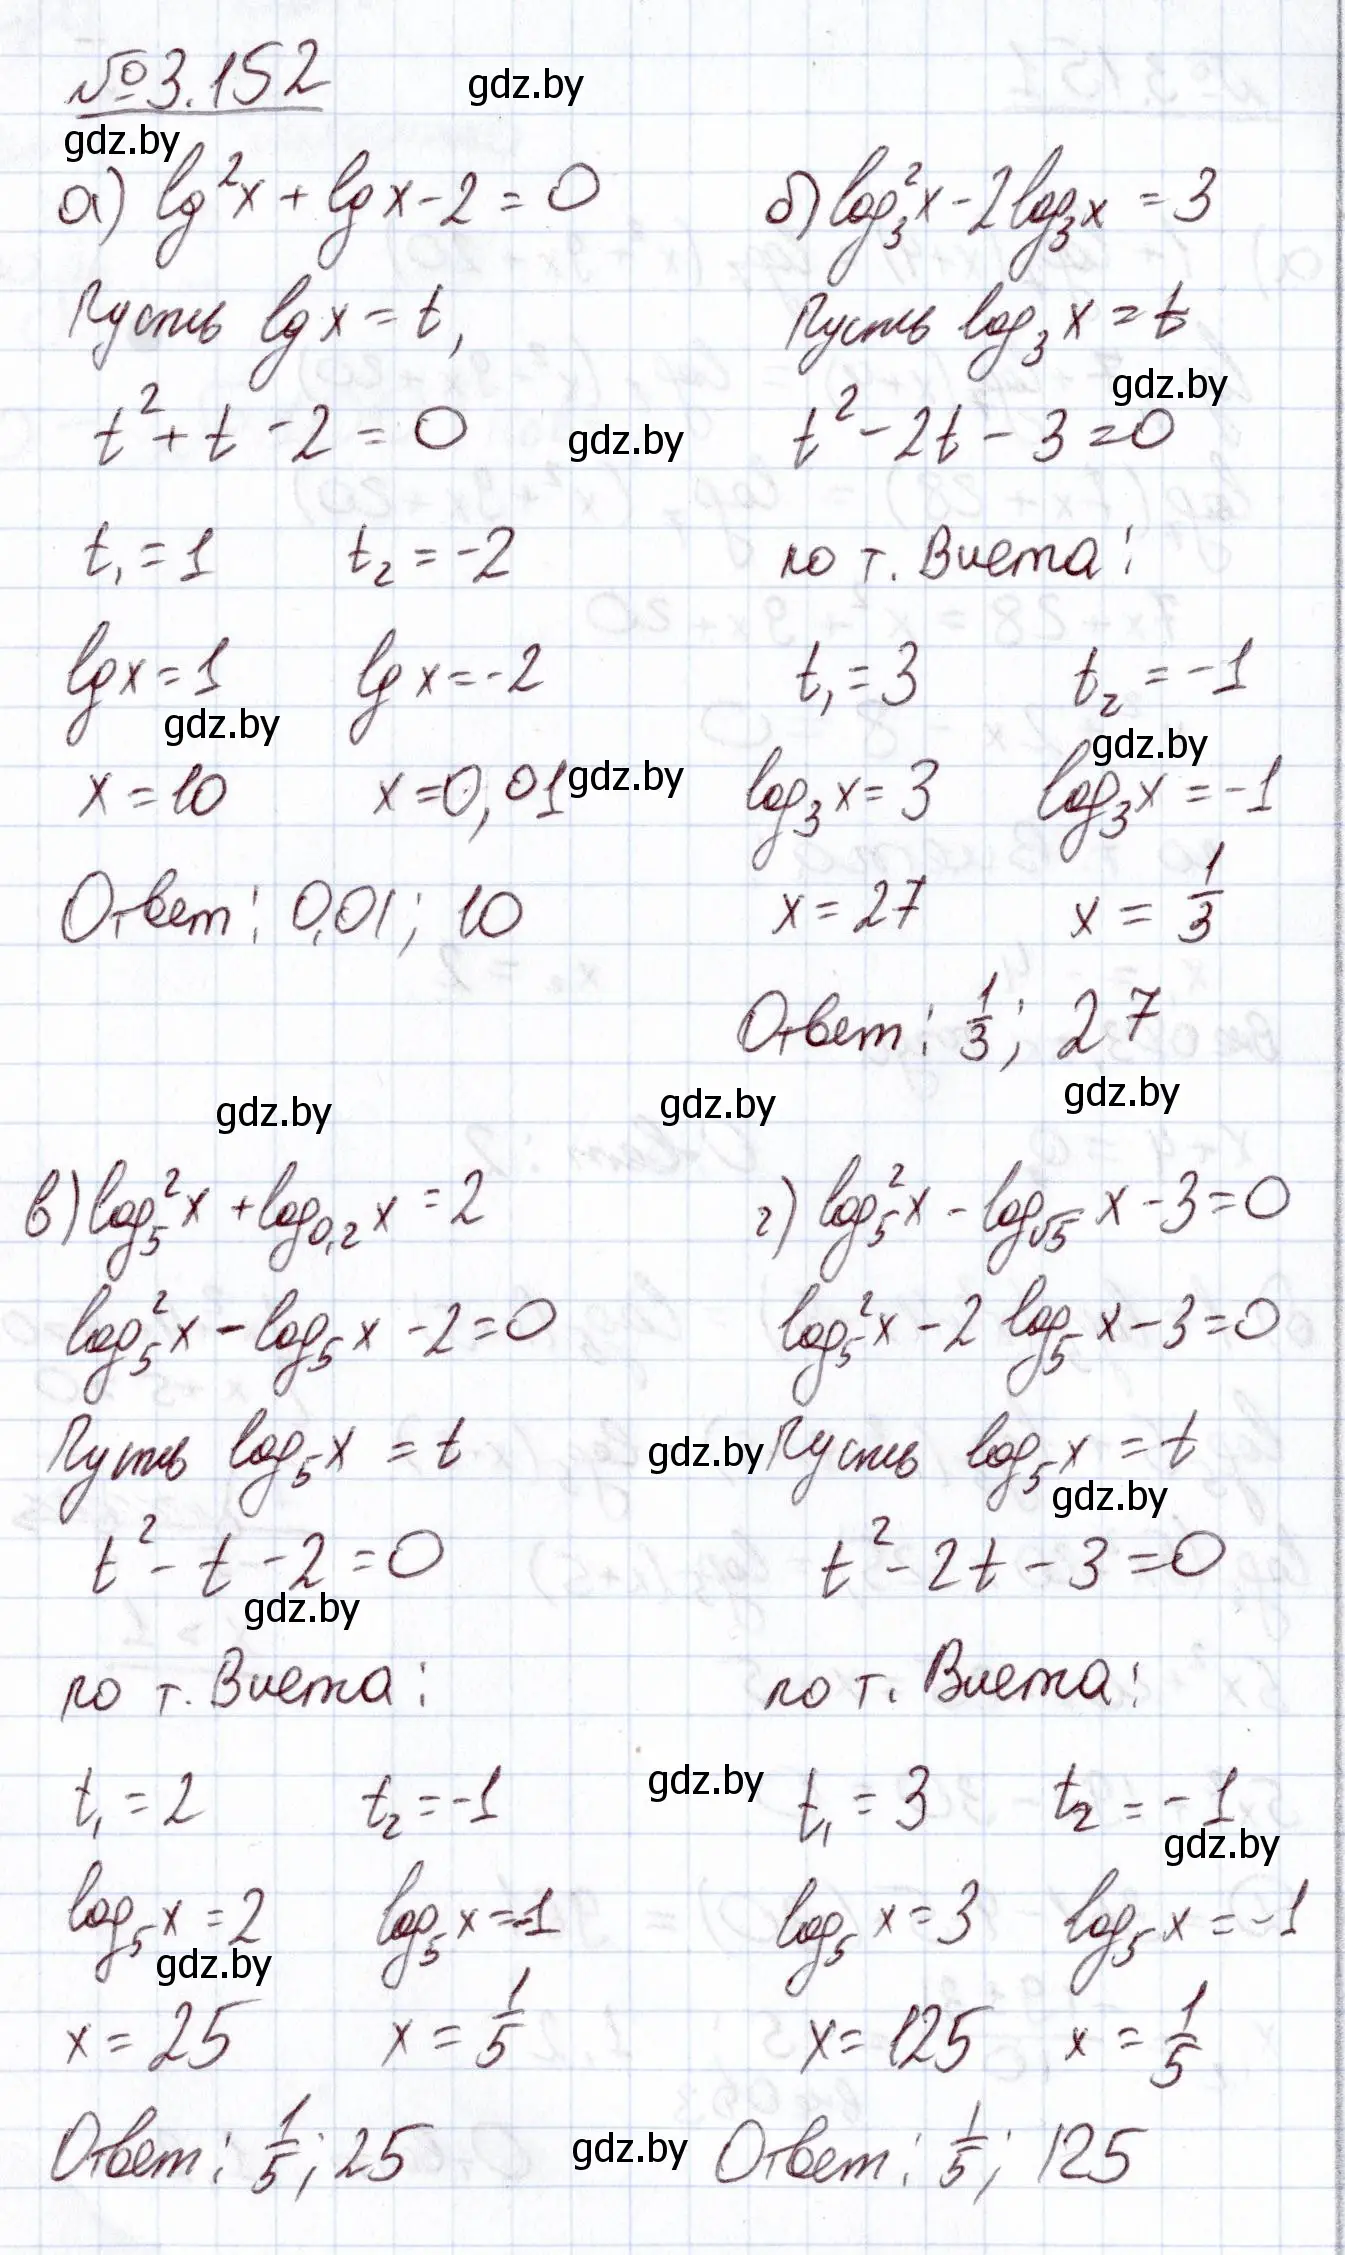 №3.152
gdz.by
gdz.by
а) lg²x + lgx - 2 = 0
Пусть lgx = t,
t² + t - 2 = 0
gdz.by
t₁ = 1 t₂ = -2
lgx = 1 lgx = -2
gdz.by
x = 10 x = 0,01
gdz.by
Ответ: 0,01; 10
б) log₃²x - 2log₃x = 3
Пусть log₃x = t
gdz.by
t² - 2t - 3 = 0
по т. Виета:
t₁ = 3 t₂ = -1
gdz.by
log₃x = 3 log₃x = -1
x = 27 x = 1/3
Ответ: 1/3; 27
gdz.by
gdz.by
gdz.by
в) log₅²x + log₀,₂x = 2
log₅²x - log₅x - 2 = 0
Пусть log₅x = t
gdz.by
t² - t - 2 = 0
gdz.by
по т. Виета:
t₁ = 2 t₂ = -1
gdz.by
log₅x = 2 log₅x = -1
gdz.by
x = 25 x = 1/5
Ответ: 1/5; 25
gdz.by
г) log₅²x - log_√5 x - 3 = 0
log₅²x - 2 log₅x - 3 = 0
Пусть log₅x = t
gdz.by
t² - 2t - 3 = 0
по т. Виета:
t₁ = 3 t₂ = -1
gdz.by
log₅x = 3 log₅x = -1
x = 125 x = 1/5
Ответ: 1/5; 125